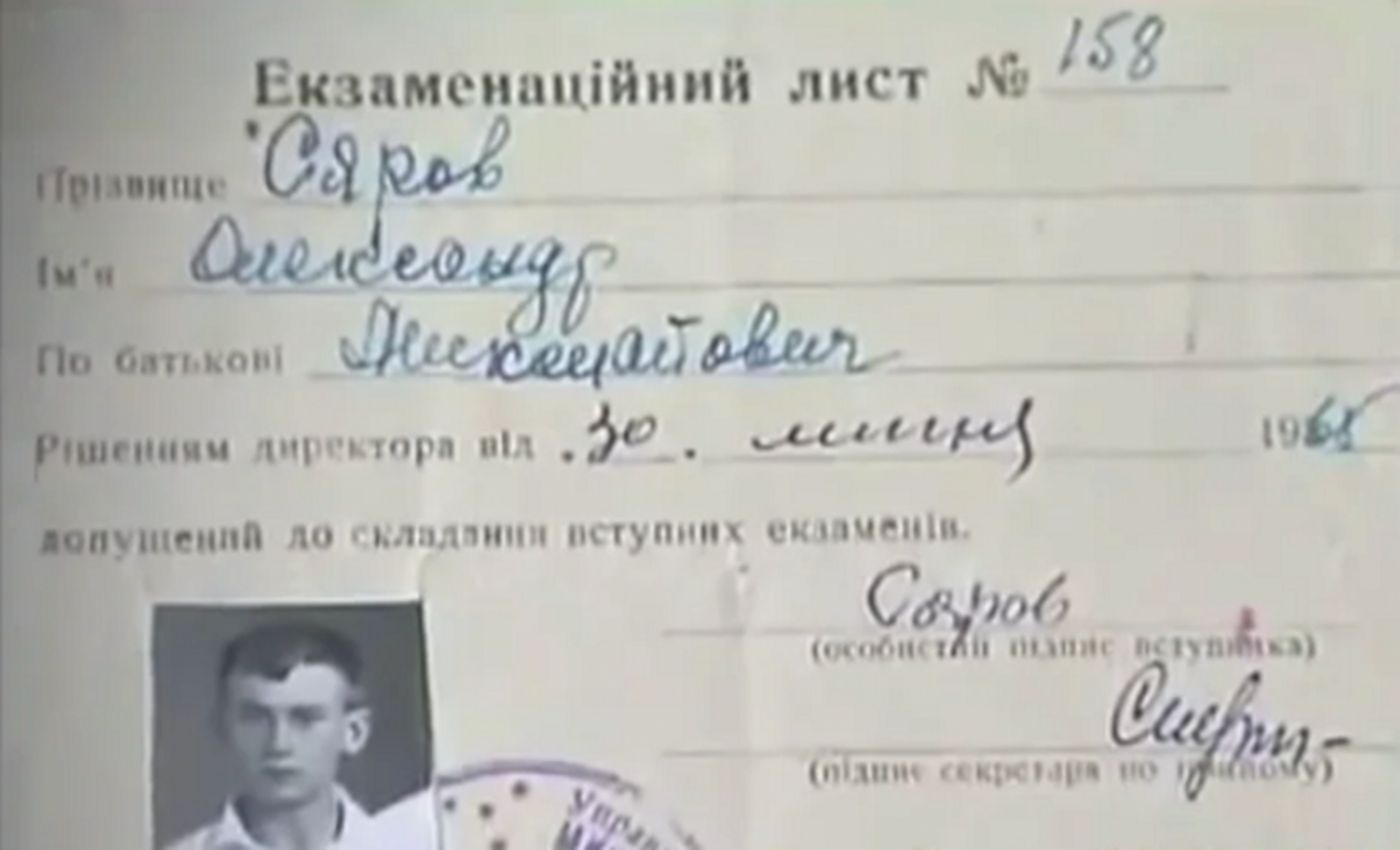 Екзаменаційний лист № 158
Прізвище Сяров
Ім'я Олександр
По батькові
Рішенням директора від 30. липня 1965
допущений до складання вступних екзаменів.
Сяров
(особистий підпис вступника)
(підпис секретаря по прийому)
Управ